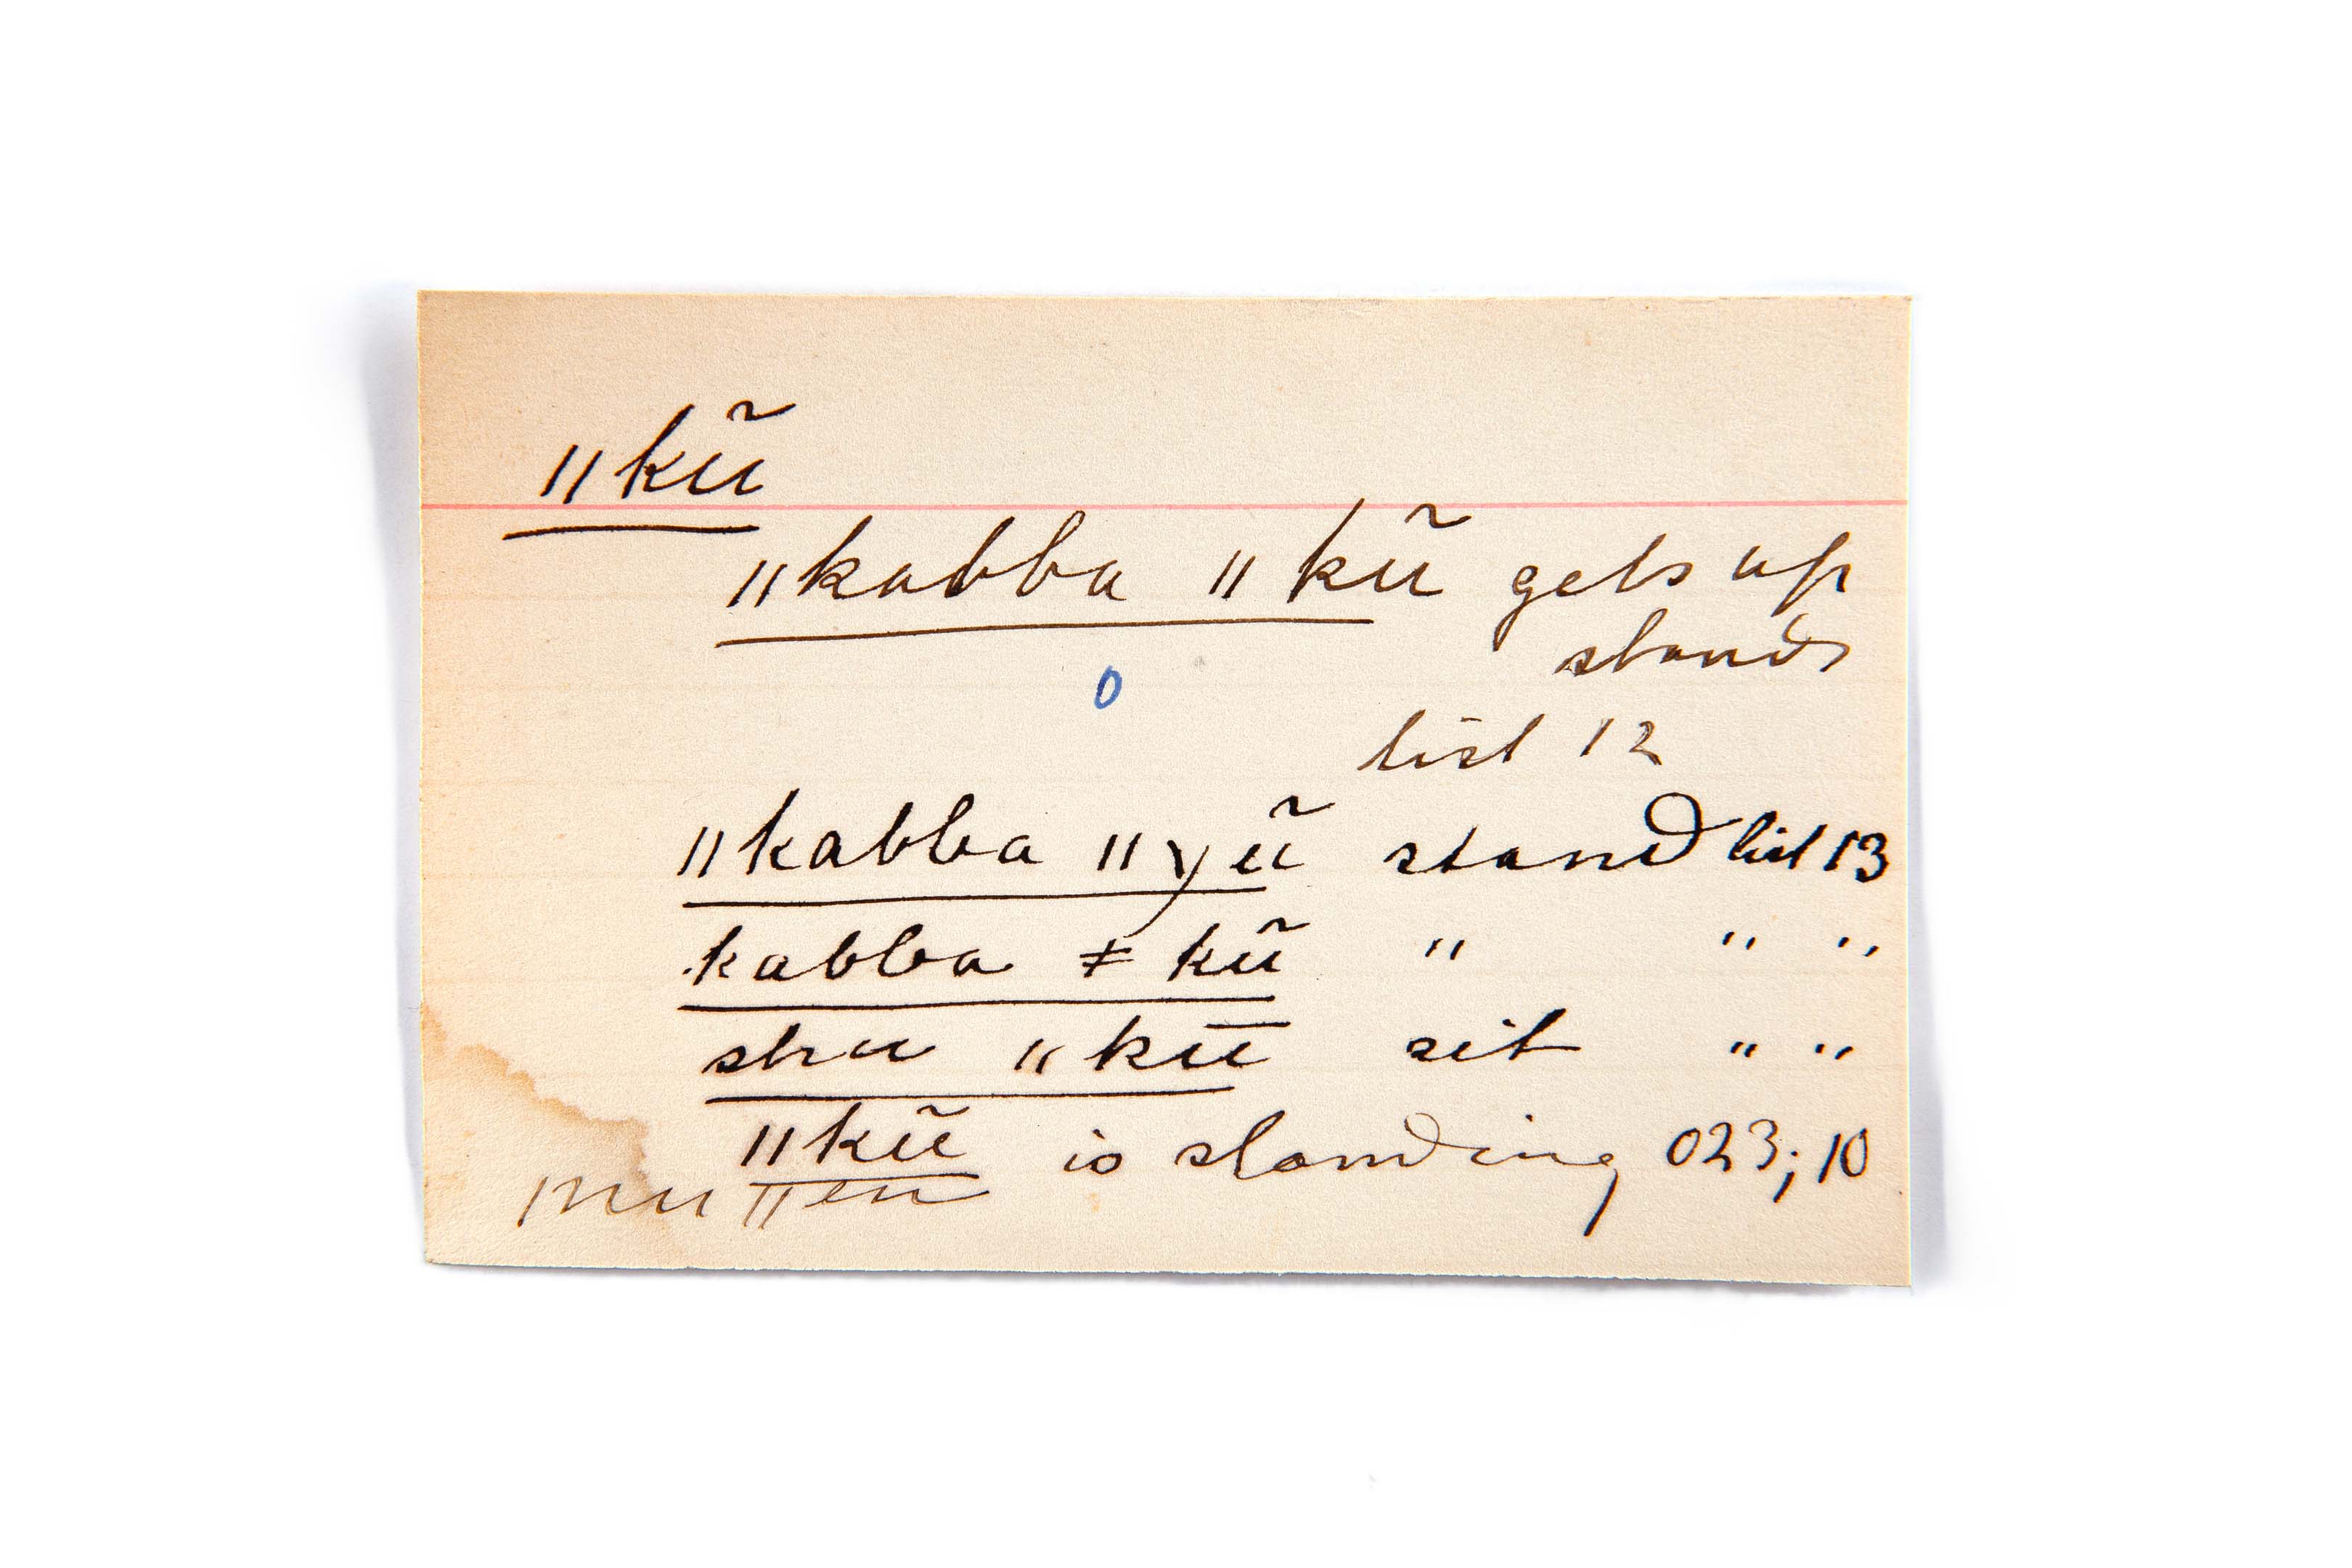 ǁkũ
ǁkabba ǁkũ gets up
stands
0
list 12
ǁkabba ǁχũ stand list 13
kabba ǂkũ " " "
shu ǁkū sit " "
ǁkũ is standing 023; 10